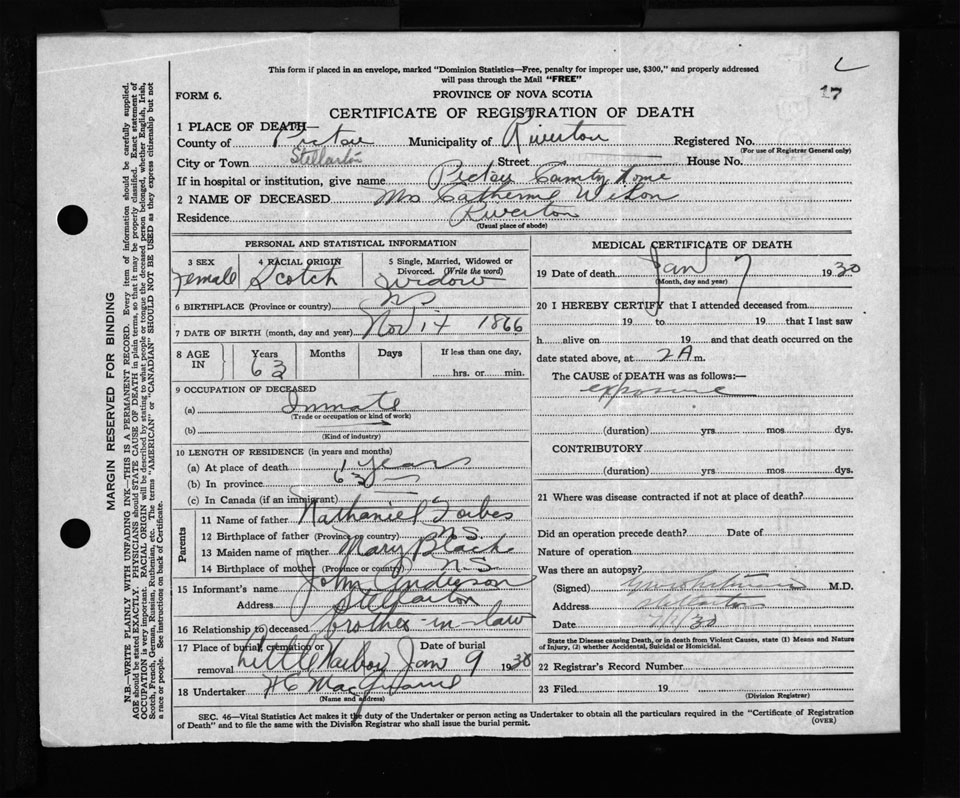 This form if placed in an envelope, marked "Dominion Statistics—Free, penalty for improper use, $300," and properly addressed
will pass through the Mail "FREE"
17
FORM 6.
PROVINCE OF NOVA SCOTIA
CERTIFICATE OF REGISTRATION OF DEATH
1 PLACE OF DEATH
County of Pictou Municipality of Riverton Registered No.
(For use of Registrar General only)
City or Town Stellarton Street House No.
If in hospital or institution, give name Pictou County Home
2 NAME OF DECEASED Mrs Catherine
Residence Riverton
(Usual place of abode)
PERSONAL AND STATISTICAL INFORMATION
3 SEX Female
4 RACIAL ORIGIN Scotch
5 Single, Married, Widowed or Divorced. (Write the word) Widow
6 BIRTHPLACE (Province or country) NS
7 DATE OF BIRTH (month, day and year) Nov 1866
8 AGE IN Years 63 Months Days If less than one day, hrs. or min.
9 OCCUPATION OF DECEASED
(a) Inmate
(Trade or occupation or kind of work)
(b)
(Kind of industry)
10 LENGTH OF RESIDENCE (in years and months)
(a) At place of death years
(b) In province 63
(c) In Canada (if an immigrant)
Parents
11 Name of father Nathaniel Forbes
12 Birthplace of father (Province or country) N.S.
13 Maiden name of mother Mary Black
14 Birthplace of mother (Province or country) N-S
15 Informant's name John Anderson
Address Stellarton
16 Relationship to deceased brother-in-law
17 Place of burial, cremation or removal Little Harbor Date of burial Jan 9 1930
18 Undertaker
(Name and address)
MEDICAL CERTIFICATE OF DEATH
19 Date of death Jan 7 1930
(Month, day and year)
20 I HEREBY CERTIFY that I attended deceased from
19 to 19 that I last saw
h alive on 19 and that death occurred on the
date stated above, at 2 A m.
The CAUSE of DEATH was as follows:—
exposure
(duration) yrs mos dys.
CONTRIBUTORY
(duration) yrs mos dys.
21 Where was disease contracted if not at place of death?
Did an operation precede death? Date of
Nature of operation
Was there an autopsy?
(Signed) M.D.
Address Stellarton
Date 7/1/30
State the Disease causing Death, or in death from Violent Causes, state (1) Means and Nature
of Injury, (2) whether Accidental, Suicidal or Homicidal.
22 Registrar's Record Number
23 Filed 19
(Division Registrar)
SEC. 46—Vital Statistics Act makes it the duty of the Undertaker or person acting as Undertaker to obtain all the particulars required in the "Certificate of Registration
of Death" and to file the same with the Division Registrar who shall issue the burial permit.
(OVER)
MARGIN RESERVED FOR BINDING
N.B.—WRITE PLAINLY WITH UNFADING INK—THIS IS A PERMANENT RECORD. Every item of information should be carefully supplied.
AGE should be stated EXACTLY. PHYSICIANS should STATE CAUSE OF DEATH in plain terms, so that it may be properly classified. Exact statement of
OCCUPATION is very important. RACIAL ORIGIN will be described by stating to what people or tongue the deceased person belonged, whether English, Irish,
Scotch, French, German, Russian, Ruthenian, etc. The terms "AMERICAN" or "CANADIAN" SHOULD NOT BE USED as they express citizenship but not
a race or people. See instructions on back of Certificate.